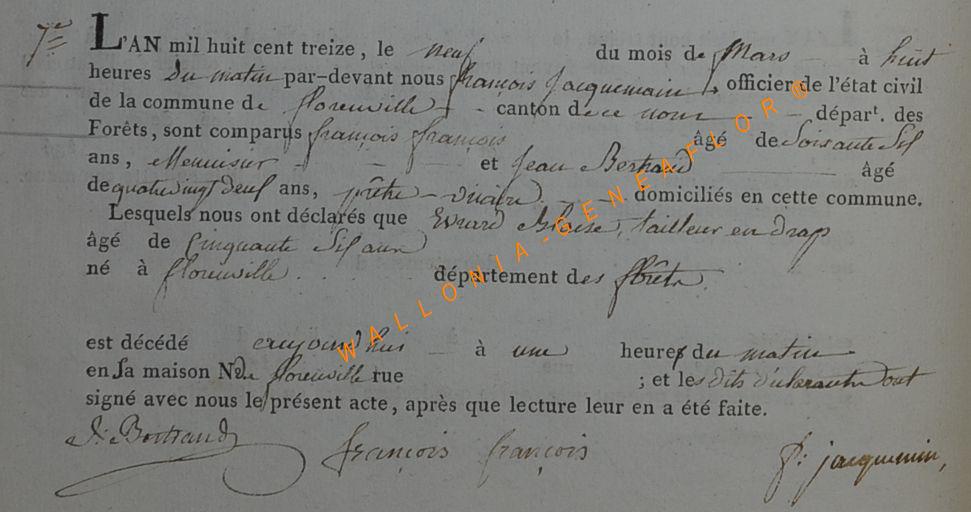 7e
L'AN mil huit cent treize, le neuf du mois de Mars à huit
heures Du matin par-devant nous françois Jacquemain, officier de l'état civil
de la commune de florenville canton de ce nom dépar<sup>t</sup>. des
Forêts, sont comparus françois françois âgé de Soisante Sif
ans, Menuisier et Jean Bertrand âgé
de quatrevingt deuf ans, prêtre-vicaire domiciliés en cette commune.
Lesquels nous ont déclarés que Evrard Blaise, tailleur en drap
âgé de Cinquante Sif ans
né à florenville. département des forêts.
est décédé aujourd'huis à une heures du matin
en sa maison N de florenville rue ; et les dits déclarants ont
signé avec nous le présent acte, après que lecture leur en a été faite.
J: Bertrand françois françois f: jacquemin,
WALLONIA-GENEAFLOR®